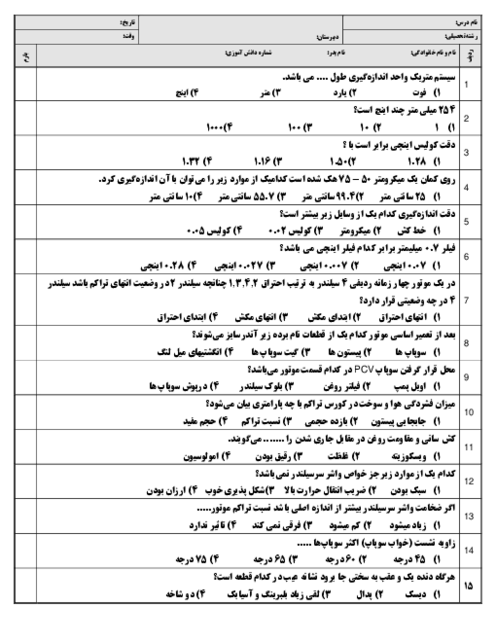 نام درس: تاریخ:
رشته تحصیلی: دبیرستان: وقت:
ردیف نام و نام خانوادگی: نام پدر: شماره دانش آموزی: بارم
1 سیستم متریک واحد اندازه‌گیری طول .... می باشد.
۱) فوت ۲) یارد ۳) متر ۴) اینچ
2 ۲۵۴ میلی متر چند اینچ است؟
۱) ۱ ۲) ۱۰ ۳) ۱۰۰ ۴) ۱۰۰۰
3 دقت کولیس اینچی برابر است با ؟
۱) ۱.۲۸ ۲) ۱.۵۰ ۳) ۱.۱۶ ۴) ۱.۳۲
4 روی کمان یک میکرومتر ۵۰ – ۷۵ هک شده است کدامیک از موارد زیر را می‌توان با آن اندازه‌گیری کرد.
۱) ۲۵ سانتی متر ۲) ۹۹.۴ سانتی متر ۳) ۵۵.۷ سانتی متر ۴) ۱۰ سانتی متر
5 دقت اندازه‌گیری کدام یک از وسایل زیر بیشتر است؟
۱) خط کش ۲) میکرومتر ۳) کولیس ۰.۰۲ ۴) کولیس ۰.۰۵
6 فیلر ۰.۷ میلیمتر برابر کدام فیلر اینچی می باشد؟
۱) ۰.۰۷ اینچی ۲) ۰.۰۰۷ اینچی ۳) ۰.۰۲۷ اینچی ۴) ۰.۲۸ اینچی
7 در یک موتور چهار زمانه ردیفی ۴ سیلندر به ترتیب احتراق ۱،۳،۴،۲ چنانچه سیلندر ۲ در وضعیت انتهای تراکم باشد سیلندر
۴ در چه وضعیتی قرار دارد؟
۱) انتهای احتراق ۲) ابتدای مکش ۳) انتهای مکش ۴) ابتدای احتراق
8 بعد از تعمیر اساسی موتور کدام یک از قطعات نام برده زیر آندرسایز می‌شوند؟
۱) سوپاپ ها ۲) پیستون ها ۳) گیت سوپاپ ها ۴) انگشتیهای میل لنگ
9 محل قرار گرفتن سوپاپ PCV در کدام قسمت موتور می‌باشد؟
۱) اویل پمپ ۲) فیلتر روغن ۳) بلوک سیلندر ۴) درپوش سوپاپ ها
10 میزان فشردگی هوا و سوخت در کورس تراکم با چه پارامتری بیان می‌شود؟
۱) جابجایی پیستون ۲) بازده حجمی ۳) نسبت تراکم ۴) حجم مفید
11 کش سانی و مقاومت روغن در مقابل جاری شدن را ........ می‌گویند.
۱) ویسکوزیته ۲) غلظت ۳) رقیق بودن ۴) امولوسیون
12 کدام یک از موارد زیر جز خواص واشر سرسیلندر نمی‌باشد؟
۱) سبک بودن ۲) ضریب انتقال حرارت بالا ۳) شکل پذیری خوب ۴) ارزان بودن
13 اگر ضخامت واشر سرسیلندر بیشتر از اندازه اصلی باشد نسبت تراکم موتور.....
۱) زیاد میشود ۲) کم میشود ۳) فرقی نمی کند ۴) تاثیر ندارد
14 زاویه نشست (خواب سوپاپ) اکثر سوپاپ‌ها .....
۱) ۴۵ درجه ۲) ۶۰ درجه ۳) ۶۵ درجه ۴) ۷۵ درجه
۱۵ هرگاه دنده یک و عقب به سختی جا برود نشانه عیب در کدام قطعه است؟
۱) دیسک ۲) پدال ۳) لقی زیاد بلبرینگ و آسیابک ۴) دو شاخه